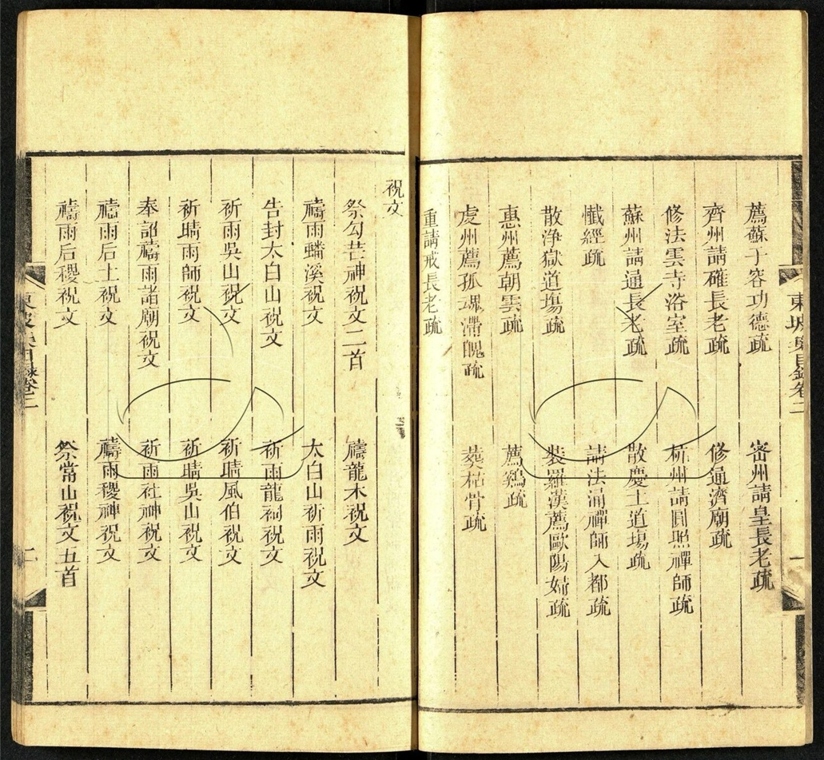 薦蘇子容功德疏
密州請皐長老疏
齊州請確長老疏
修通濟廟疏
修法雲寺浴室疏
杭州請圓照禪師疏
蘇州請通長老疏
散慶土道場疏
懺經疏
請法涌禪師入都疏
散淨獄道場疏
裝羅漢薦歐陽婦疏
惠州薦朝雲疏
薦鷄疏
虔州薦孤魂滯魄疏
葬枯骨疏
重請戒長老疏
東坡集目錄卷二
一
祝文
祭勾芒神祝文二首
禱龍水祝文
禱雨蟠溪祝文
太白山祈雨祝文
告封太白山祝文
祈雨龍祠祝文
祈雨吳山祝文
祈晴風伯祝文
祈晴雨師祝文
祈晴吳山祝文
奉詔禱雨諸廟祝文
祈雨社神祝文
禱雨后土祝文
禱雨稷神祝文
禱雨后稷祝文
祭常山祝文五首
東坡集目錄卷二
二